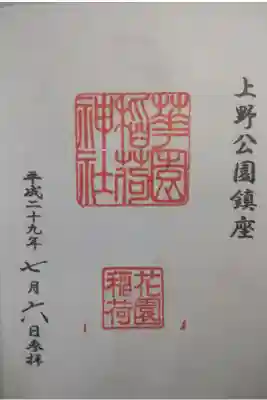 上野公園鎮座
華園
稲荷
神社
花園
稲荷
平成二十九年七月六日参拝